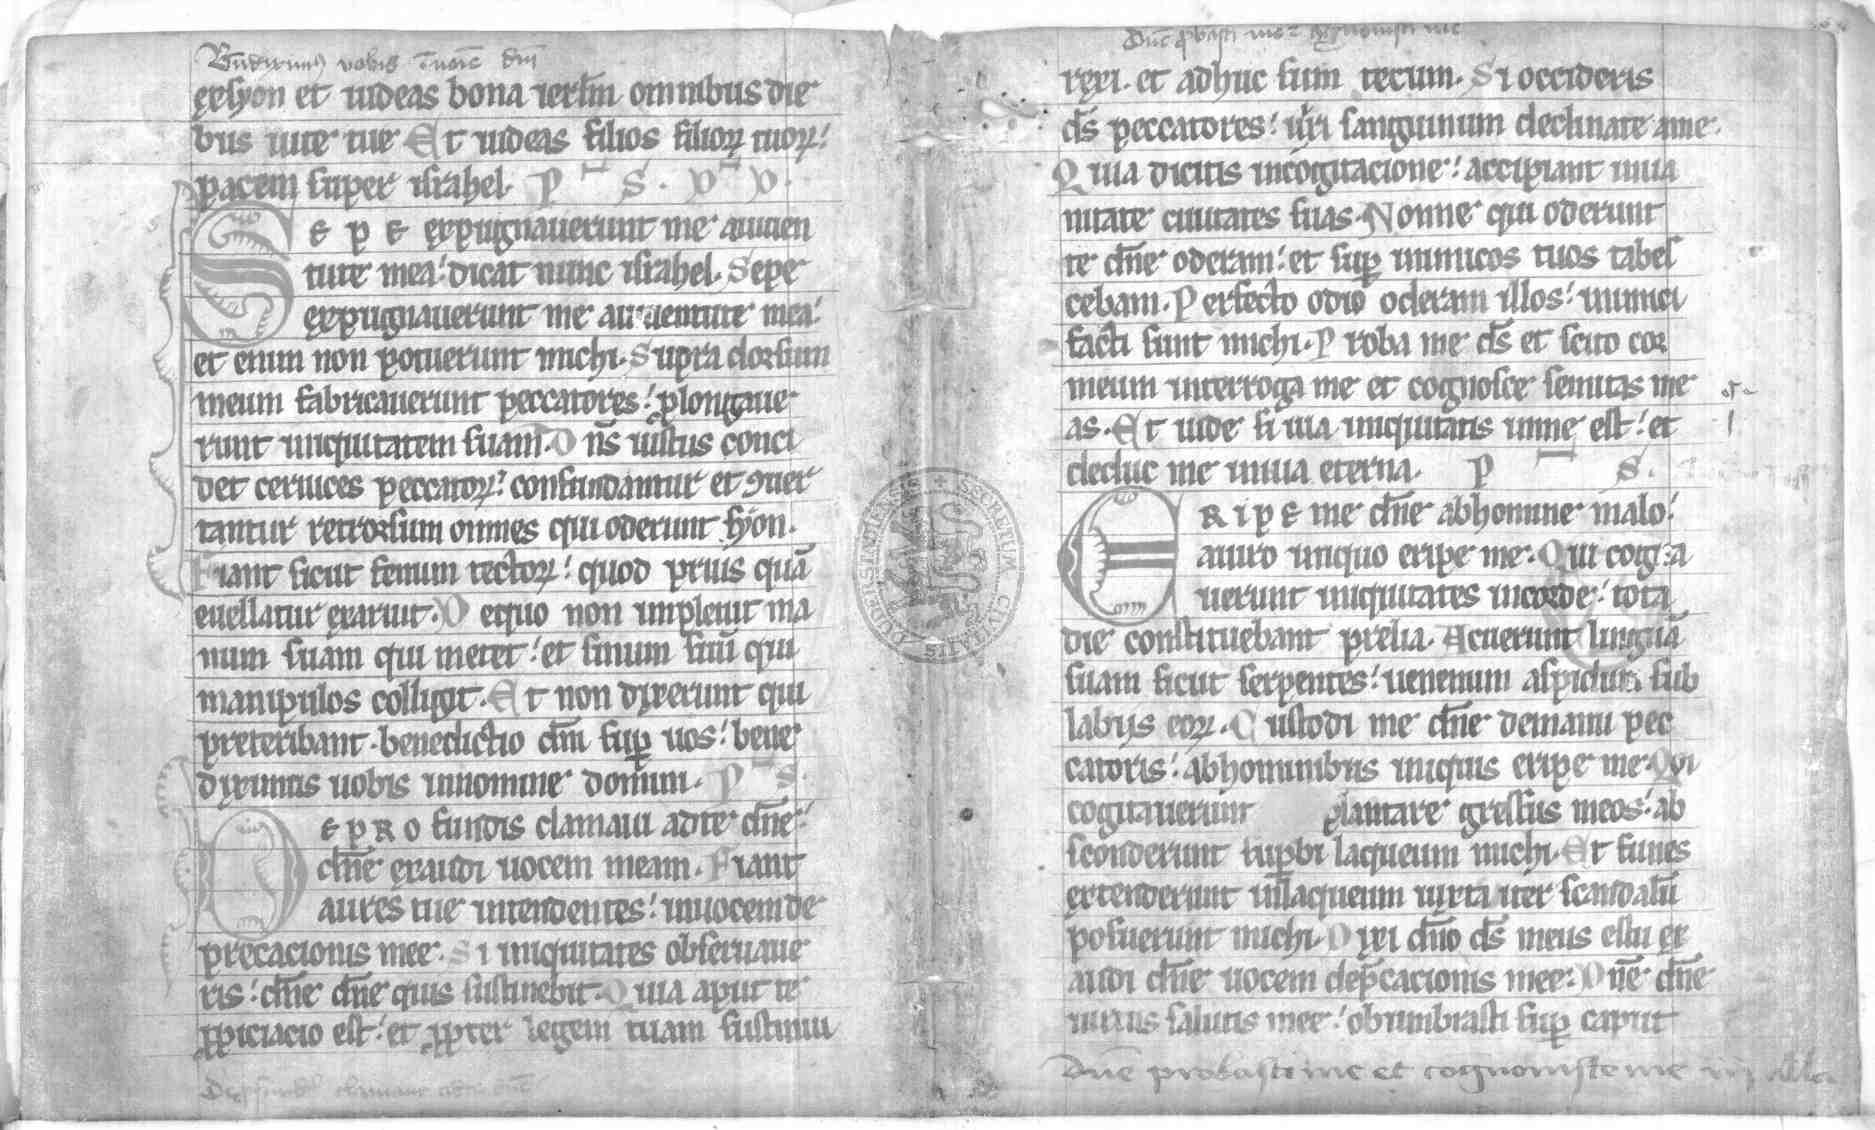 Bndixim9 vobis ī noīe dnī
exsyon et uideas bona ierłm omnibus die
bus uite tue Et uideas filios filioꝝ tuoꝝ:
pacem super israhel. P S. V V.
SEPE expugnauerunt me aiuuen
tute mea: dicat nunc israhel. Sepe
expugnauerunt me aiuuentute mea:
et enim non potuerunt michi. Supra dorsum
meum fabricauerunt peccatores: ꝓlongaue
runt iniquitatem suam. Dn̄s iustus conci
det ceruices peccatoꝝ: confundantur et ꝯuer
tantur retrorsum omnes qui oderunt syon.
Fiant sicut fenum tectoꝝ: quod prius quā
euellatur exaruit. De quo non impleuit ma
num suam qui metet: et sinum suū qui
manipulos colligit. Et non dixerunt qui
preteribant. benedictio dn̄i suꝑ uos: bene
diximus uobis innomine domini. P S.
DE PROfundis clamaui adte dn̄e:
dn̄e exaudi uocem meam. Fiant
aures tue intendentes: inuocemde
precacionis mee. Si iniquitates obseruaue
ris: dn̄e dn̄e quis sustinebit. Quia aput te
ꝓpiciacio est: et ꝓpter legem tuam sustinui
Dn̄e ꝓbasti me et cognouisti me
rexi. et adhuc sum tecum. Si occideris
ds̄ peccatores: uiri sanguinum declinate ame.
Quia dicitis incogitacione: accipiant inua
nitate ciuitates suas. Nonne qui oderunt
te dn̄e oderam: et suꝑ inimicos tuos tabes
cebam. Perfecto odio oderam illos: inimici
facti sunt michi. Proba me ds̄ et scito cor
meum interroga me et cognosce semitas me
as. Et uide si uia iniquitatis inme est: et
deduc me inuia eterna. P S.
ERIPE me dn̄e abhomine malo:
auiro iniquo eripe me. Qui cogita
uerunt iniquitates incorde: tota
die constituebant prelia. Acuerunt linguā
suam sicut serpentes: uenenum aspidum sub
labijs eoꝝ. Custodi me dn̄e demanu pec
catoris: abhominibus iniquis eripe me. Qui
cogitauerunt plantare gressus meos: ab
sconderunt suꝑbi laqueum michi. Et funes
extenderunt inlaqueum iuxta iter scandalū
posuerunt michi. Dixi dn̄o ds̄ meus es tu ex
audi dn̄e uocem dep̄cacionis mee: Dn̄e dn̄e
uirtus salutis mee: obumbrasti suꝑ caput
Dn̄e probasti me et cognouiste me
SECRETUM CIVITATIS